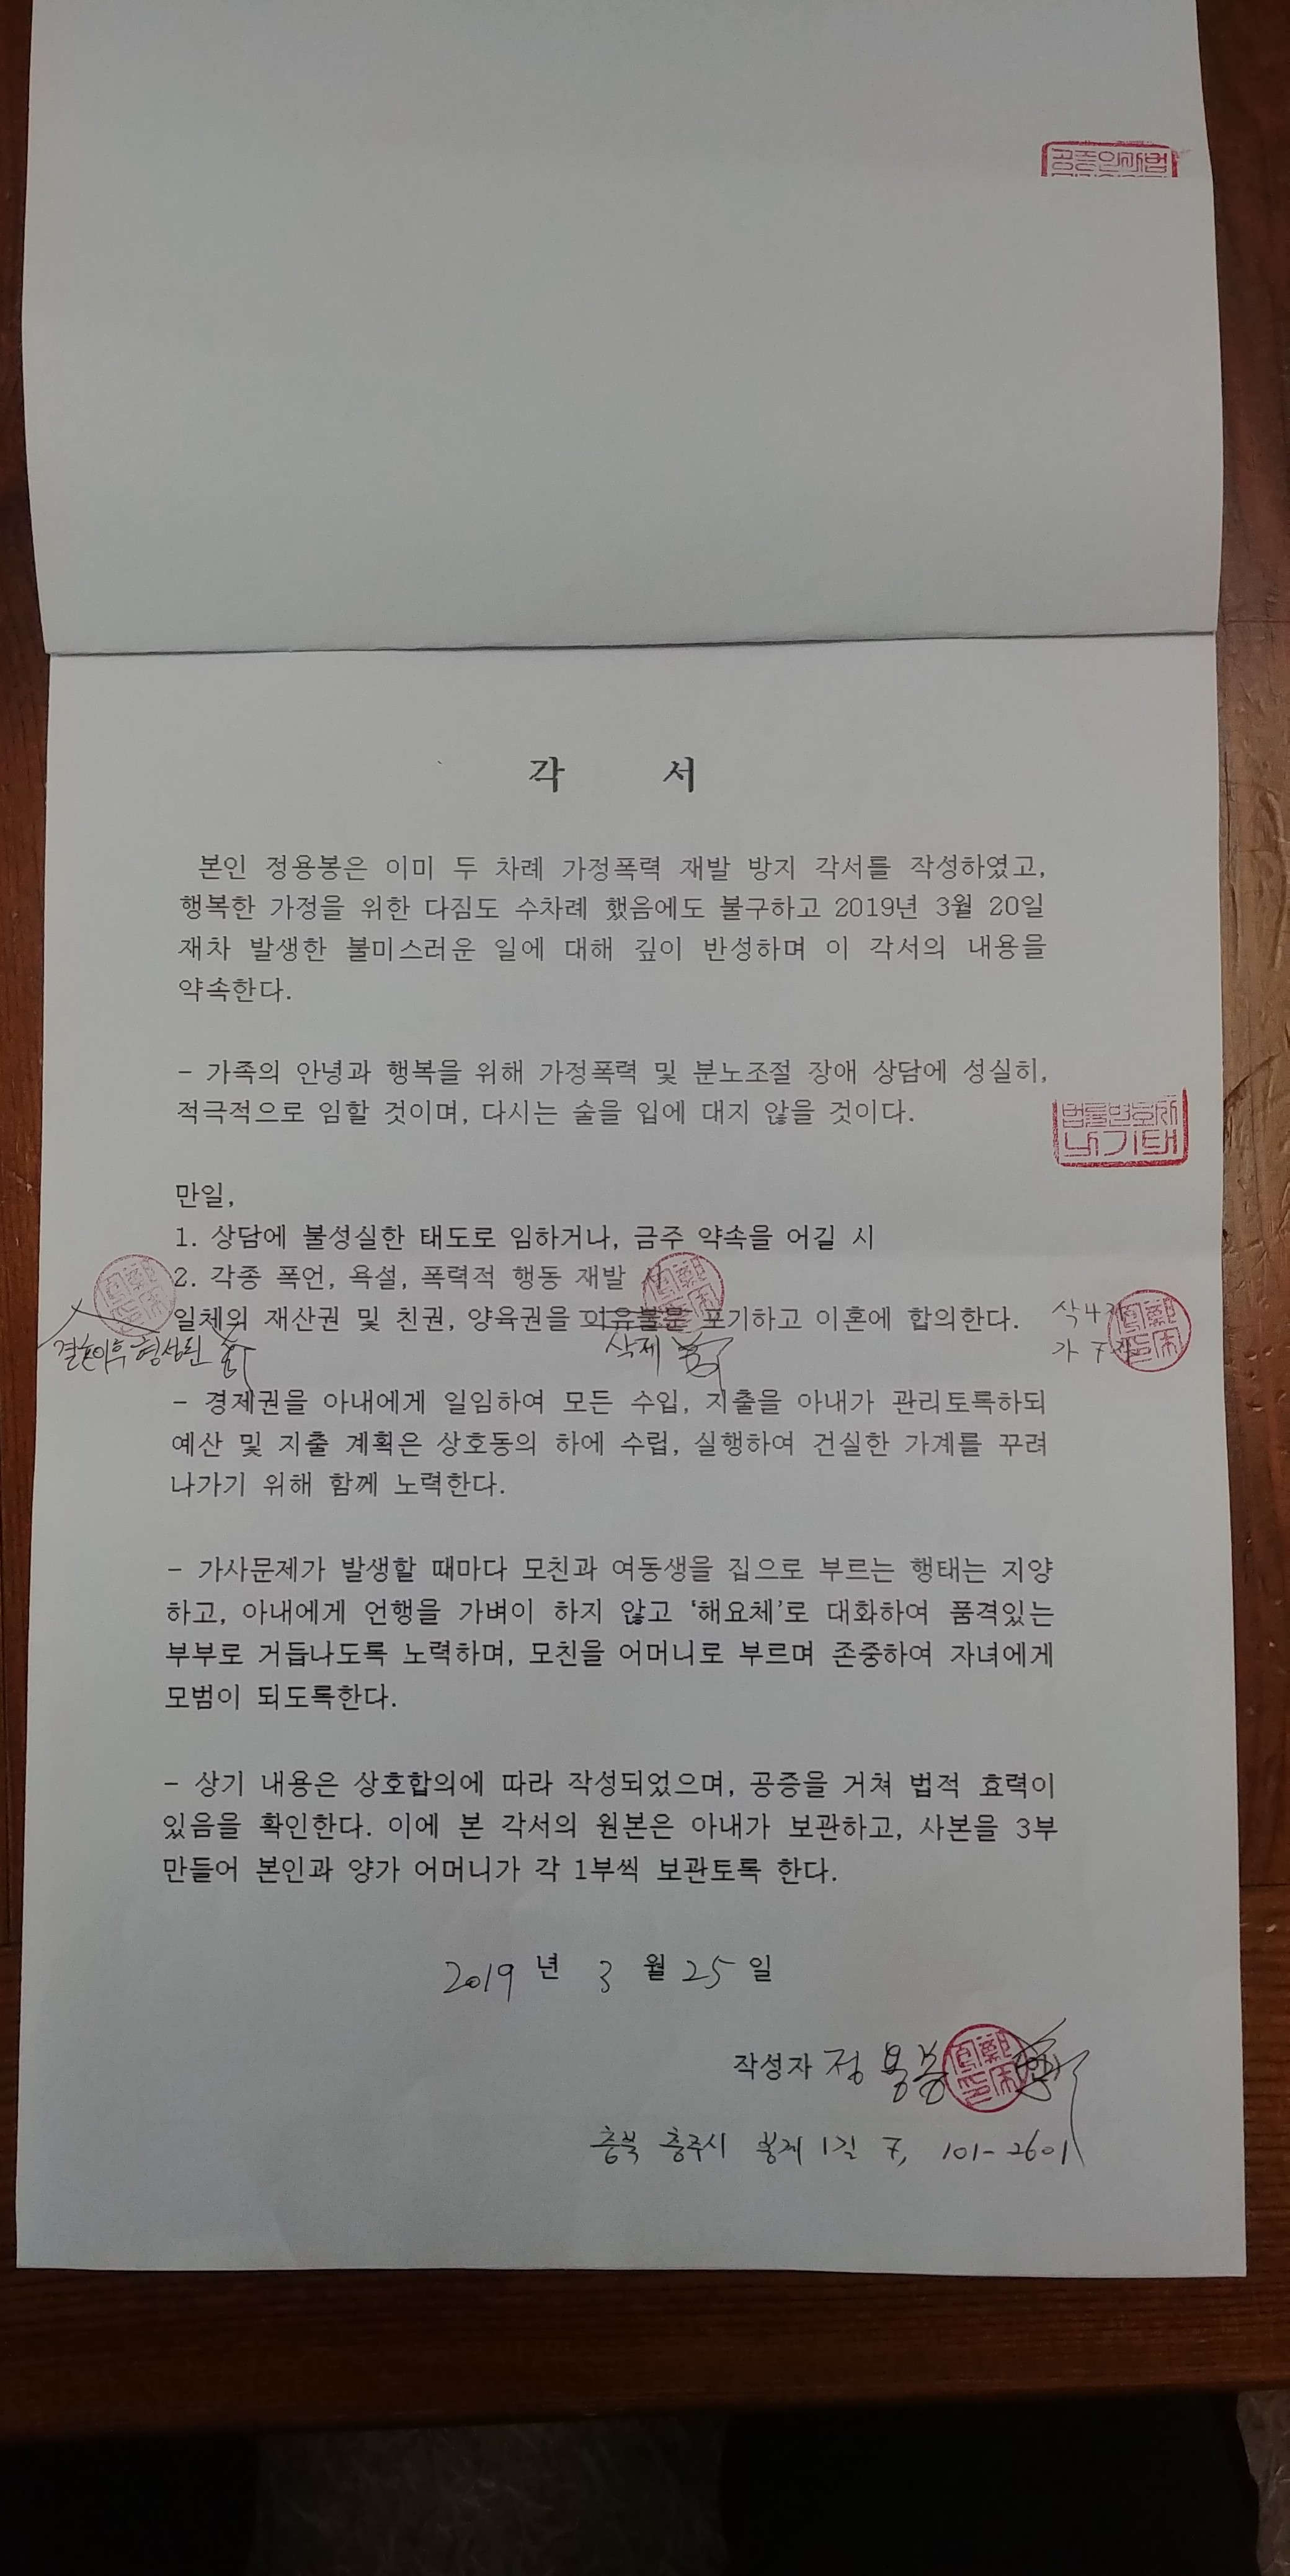 공증인가법
각 서
본인 정용봉은 이미 두 차례 가정폭력 재발 방지 각서를 작성하였고,
행복한 가정을 위한 다짐도 수차례 했음에도 불구하고 2019년 3월 20일
재차 발생한 불미스러운 일에 대해 깊이 반성하며 이 각서의 내용을
약속한다.
- 가족의 안녕과 행복을 위해 가정폭력 및 분노조절 장애 상담에 성실히,
적극적으로 임할 것이며, 다시는 술을 입에 대지 않을 것이다.
만일,
1. 상담에 불성실한 태도로 임하거나, 금주 약속을 어길 시
2. 각종 폭언, 욕설, 폭력적 행동 재발 시
일체의 재산권 및 친권, 양육권을 이유불문 포기하고 이혼에 합의한다.
삭 4자
가 7자
결혼이후 형성된
삭제
- 경제권을 아내에게 일임하여 모든 수입, 지출을 아내가 관리토록하되
예산 및 지출 계획은 상호동의 하에 수립, 실행하여 건실한 가계를 꾸려
나가기 위해 함께 노력한다.
- 가사문제가 발생할 때마다 모친과 여동생을 집으로 부르는 행태는 지양
하고, 아내에게 언행을 가벼이 하지 않고 ‘해요체’로 대화하여 품격있는
부부로 거듭나도록 노력하며, 모친을 어머니로 부르며 존중하여 자녀에게
모범이 되도록한다.
- 상기 내용은 상호합의에 따라 작성되었으며, 공증을 거쳐 법적 효력이
있음을 확인한다. 이에 본 각서의 원본은 아내가 보관하고, 사본을 3부
만들어 본인과 양가 어머니가 각 1부씩 보관토록 한다.
2019 년 3 월 25 일
작성자 정용봉
충북 충주시 봉계1길 7, 101-2601